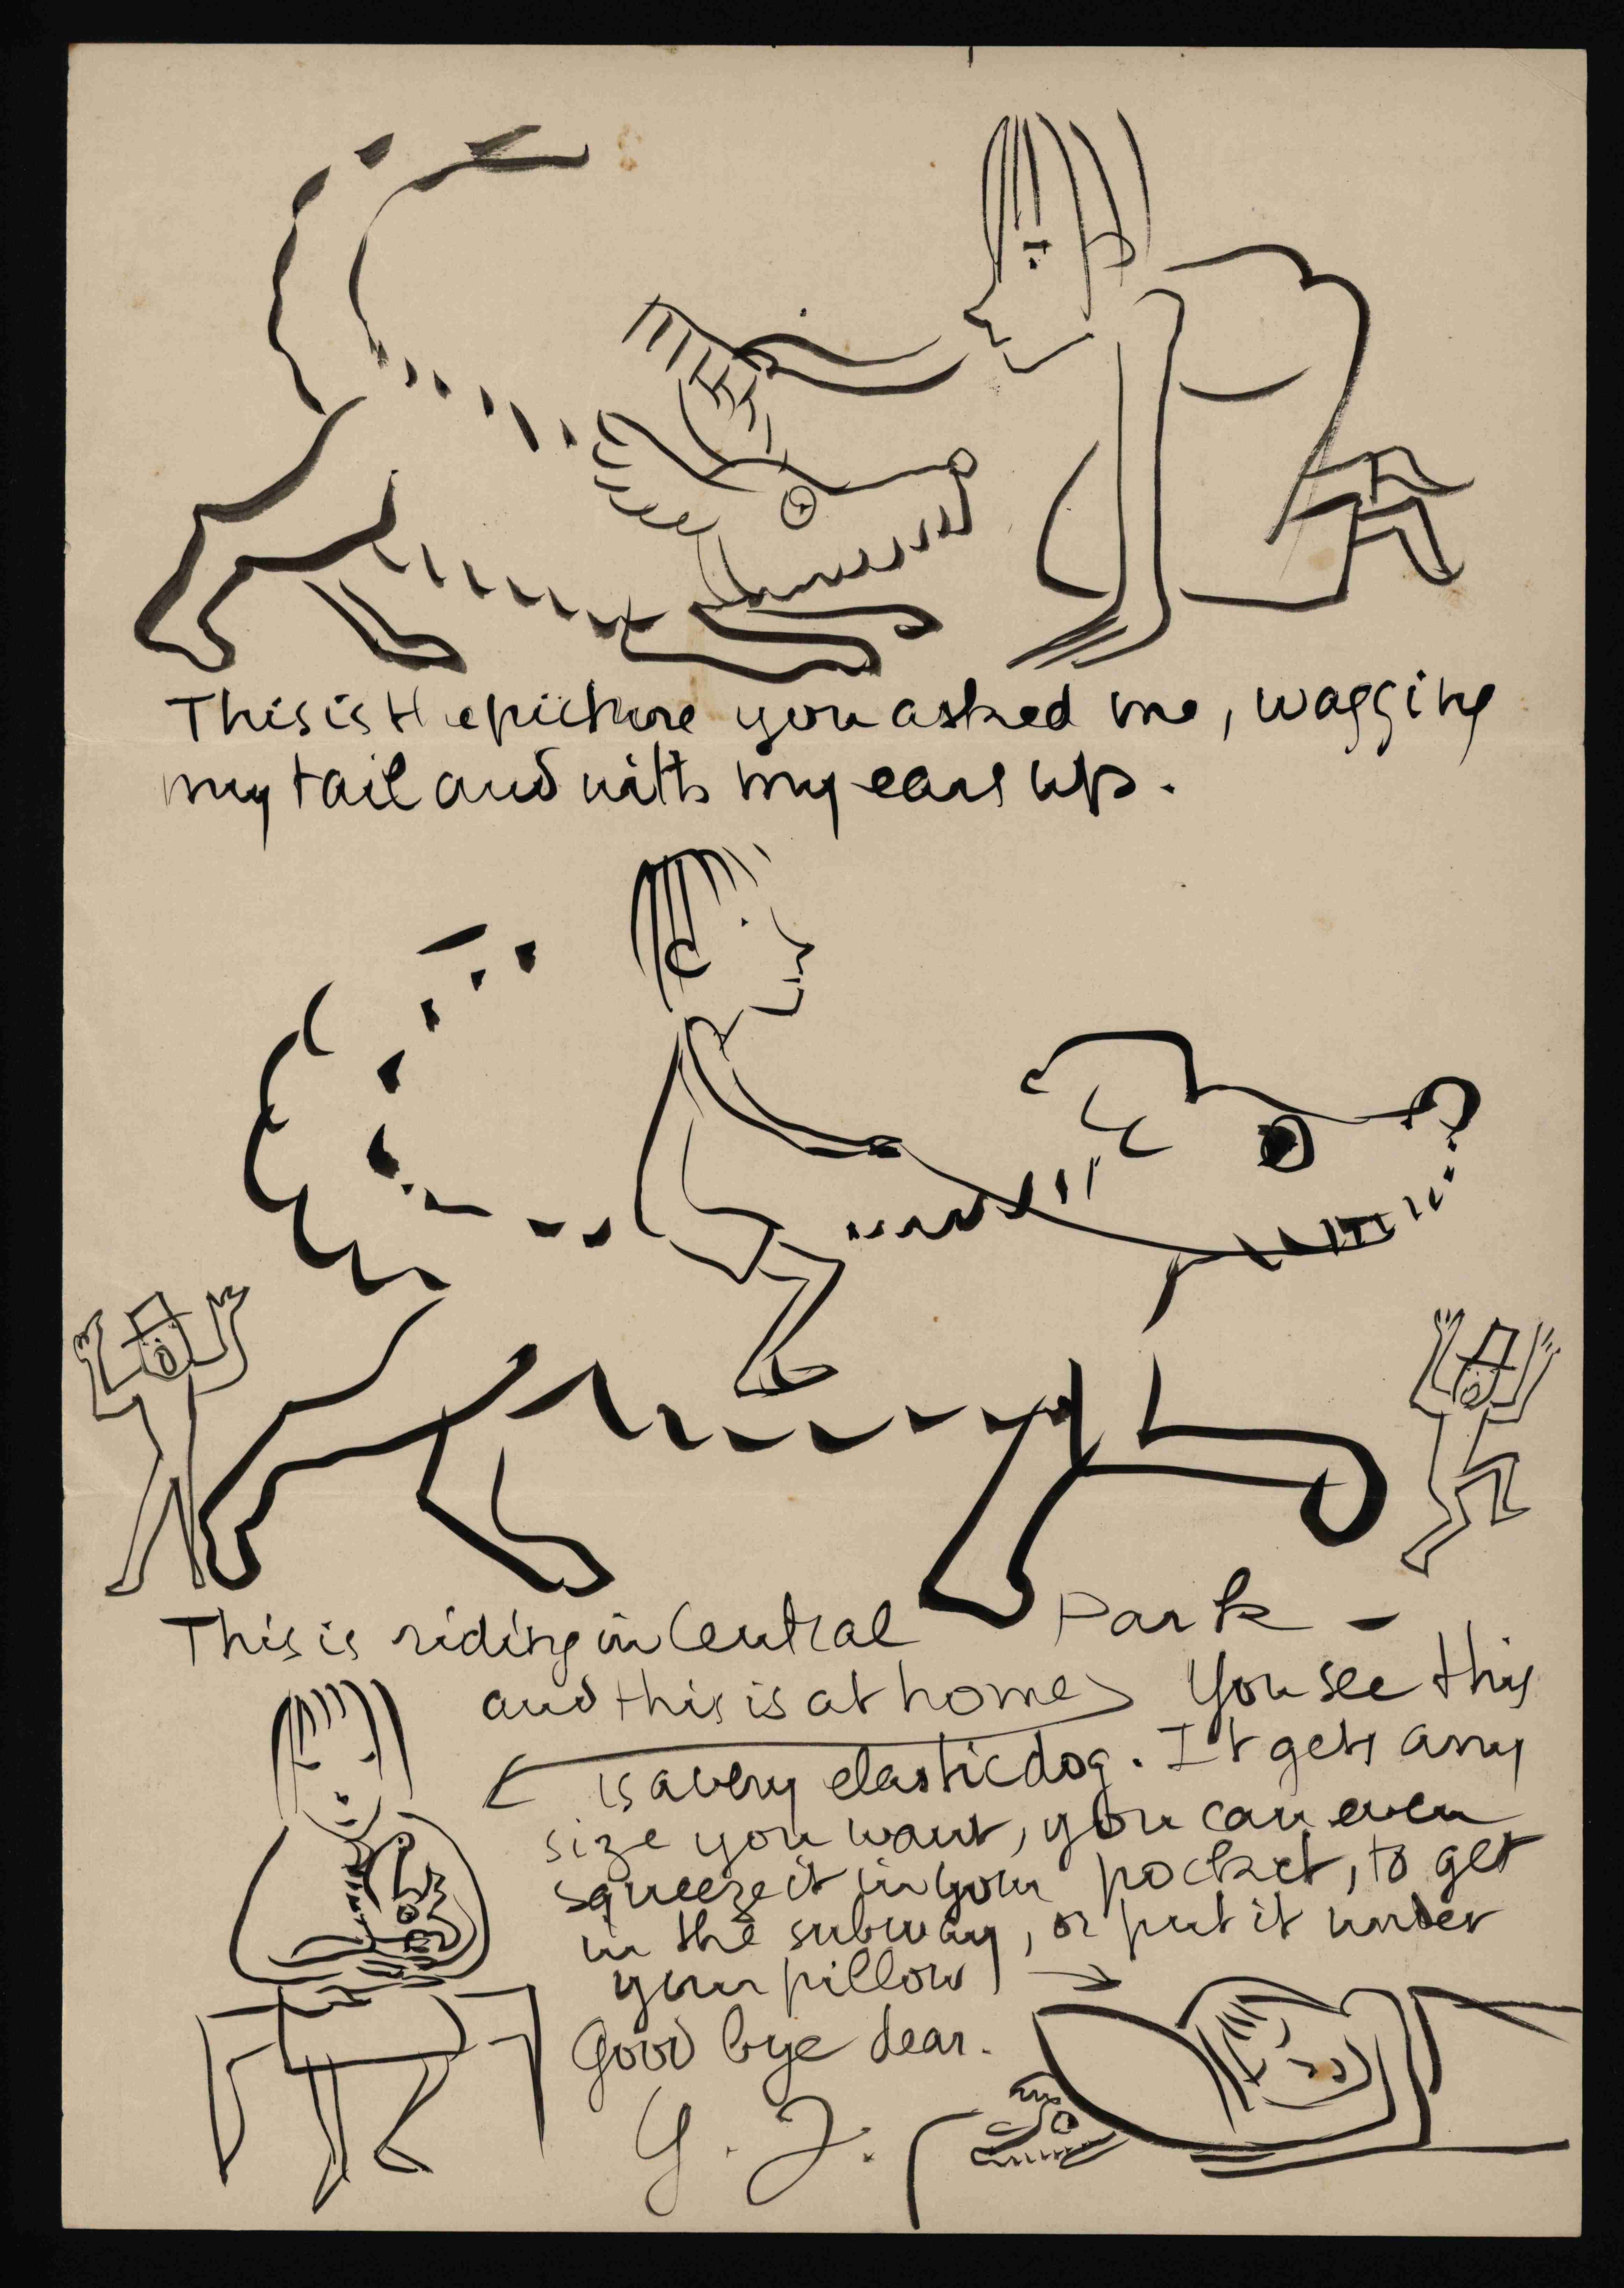 This is the picture you asked me, wagging
my tail and with my ears up.
This is riding in Central Park -
and this is at home
You see this
is a very elastic dog. It gets any
size you want, you can even
squeeze it in your pocket, to get
in the subway, or put it under
your pillow
Good bye dear.
Y. J.